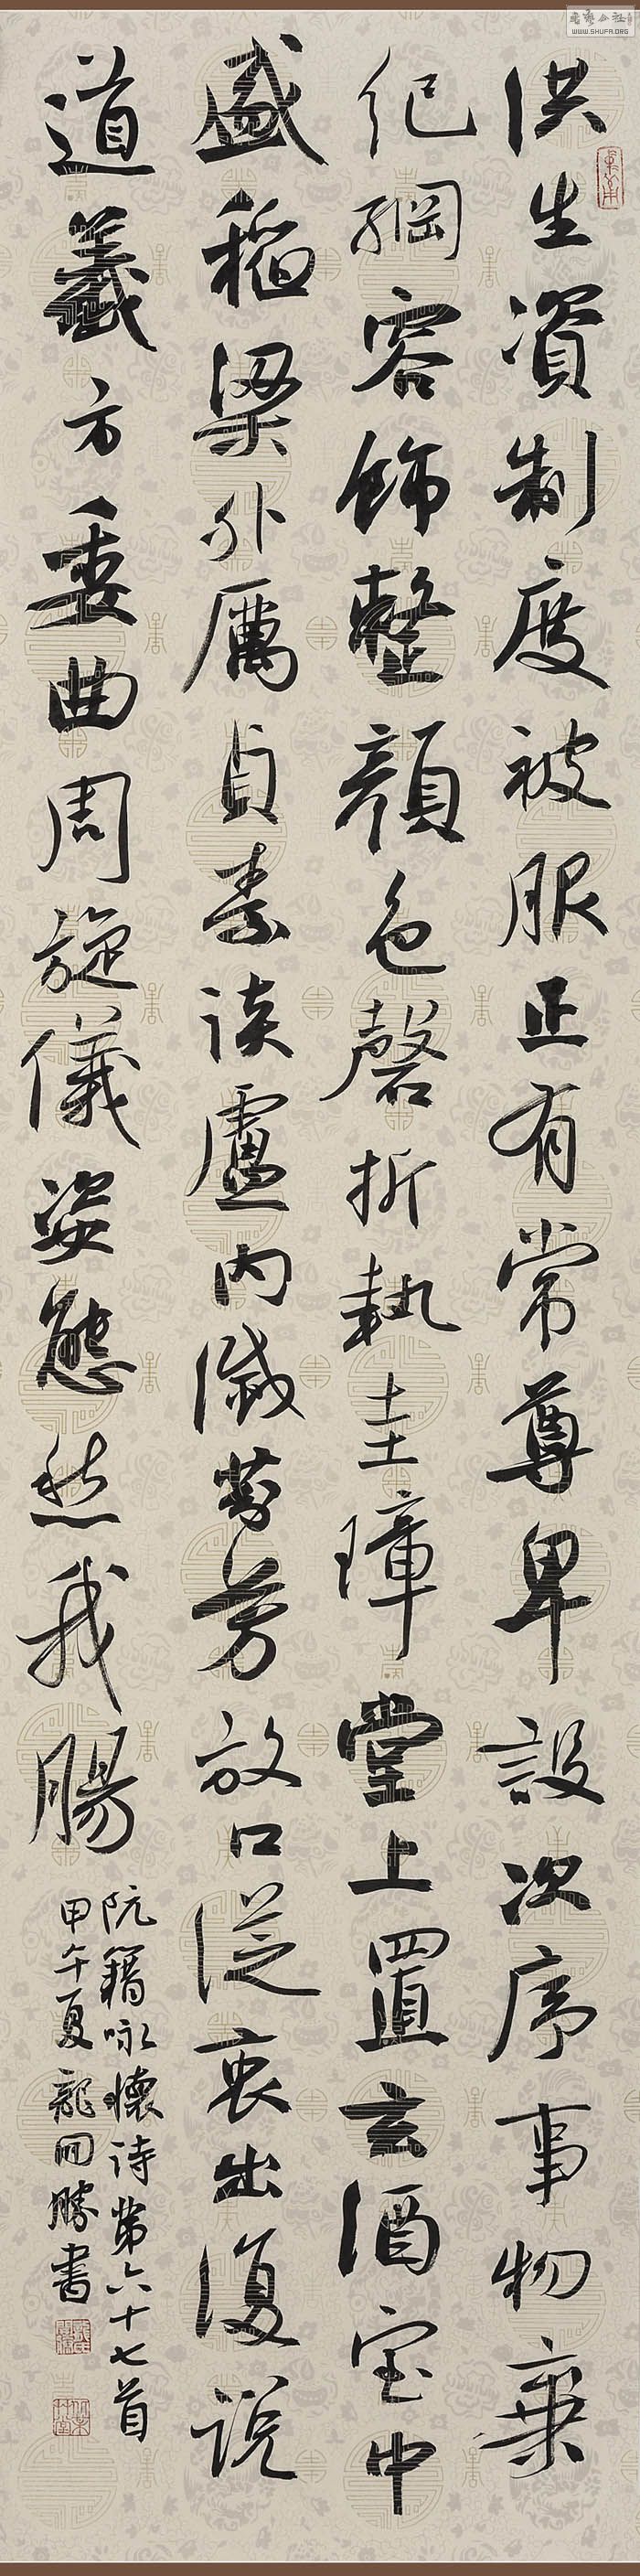 洪生資制度被服正有常尊卑設次序事物棄
紀綱容飾整顏色磬折執圭璋堂上置玄酒室中
盛稻粱外厲貞素談盧內滅芬芳放口從衷出復說
道義方委曲周旋儀姿態愁我腸
阮籍咏懷诗第六十七首
甲午夏龍開勝書
WWW.SHUFA.ORG